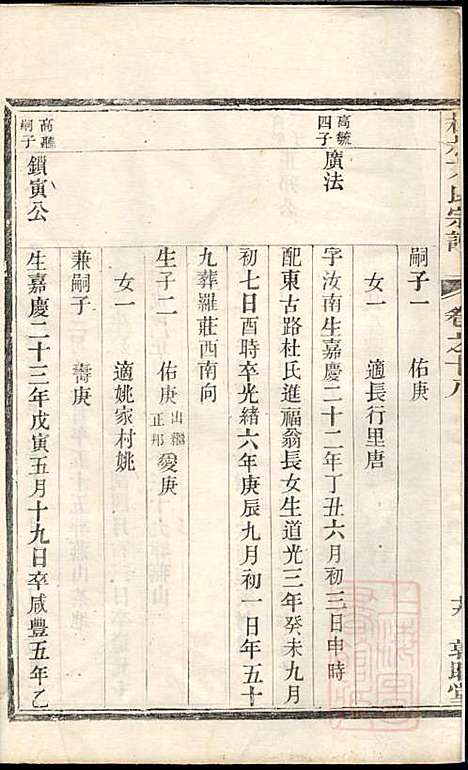 氏宗譜 卷之十八
嗣子一 佑庚
女一 適長行里唐
高毓四子 廣法 字汝南生嘉慶二十二年丁丑六月初三日申時
配東古路杜氏進福翁長女生道光三年癸未九月
初七日酉時卒光緒六年庚辰九月初一日年五十
九葬羅莊西南向
生子二 佑庚 出繼正邦 愛庚
女一 適姚家村姚
兼嗣子 壽庚
嗣子 鎖寅公 生嘉慶二十三年戊寅五月十九日卒咸豐五年乙